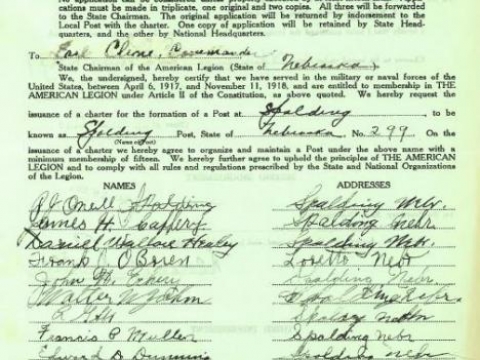 must be made in triplicate, one original and two copies. All three will be forwarded
to the State Chairman. The original application will be returned by indorsement to the
Local Post with the charter. One copy of application will be retained by State Head-
quarters, and the other by National Headquarters.
To Earl Cline, Commander
State Chairman of the American Legion (State of Nebraska)
We, the undersigned, hereby certify that we have served in the military or naval forces of the
United States, between April 6, 1917, and November 11, 1918, and are entitled to membership in THE
AMERICAN LEGION under Article II of the Constitution, as above quoted. We hereby request the
issuance of a charter for the formation of a Post at Spalding to be
known as Spalding Post, State of Nebraska No. 299 On the
(Name of Post)
issuance of a charter we hereby agree to organize and maintain a Post under the above name with a
minimum membership of fifteen. We hereby further agree to uphold the principles of THE AMERICAN
LEGION and to comply with all rules and regulations prescribed by the State and National Organizations
of the Legion.
NAMES ADDRESSES
O'Neill Spalding Nebr.
James H. Caffery Spalding Nebr.
Daniel Wallace Healey Spalding Nebr.
Frank J. O'Brien Loretto Nebr
John Spalding Nebr
Walter W.
Spalding
Francis P. Muller Spalding nebr
Edward D. Spalding nebr